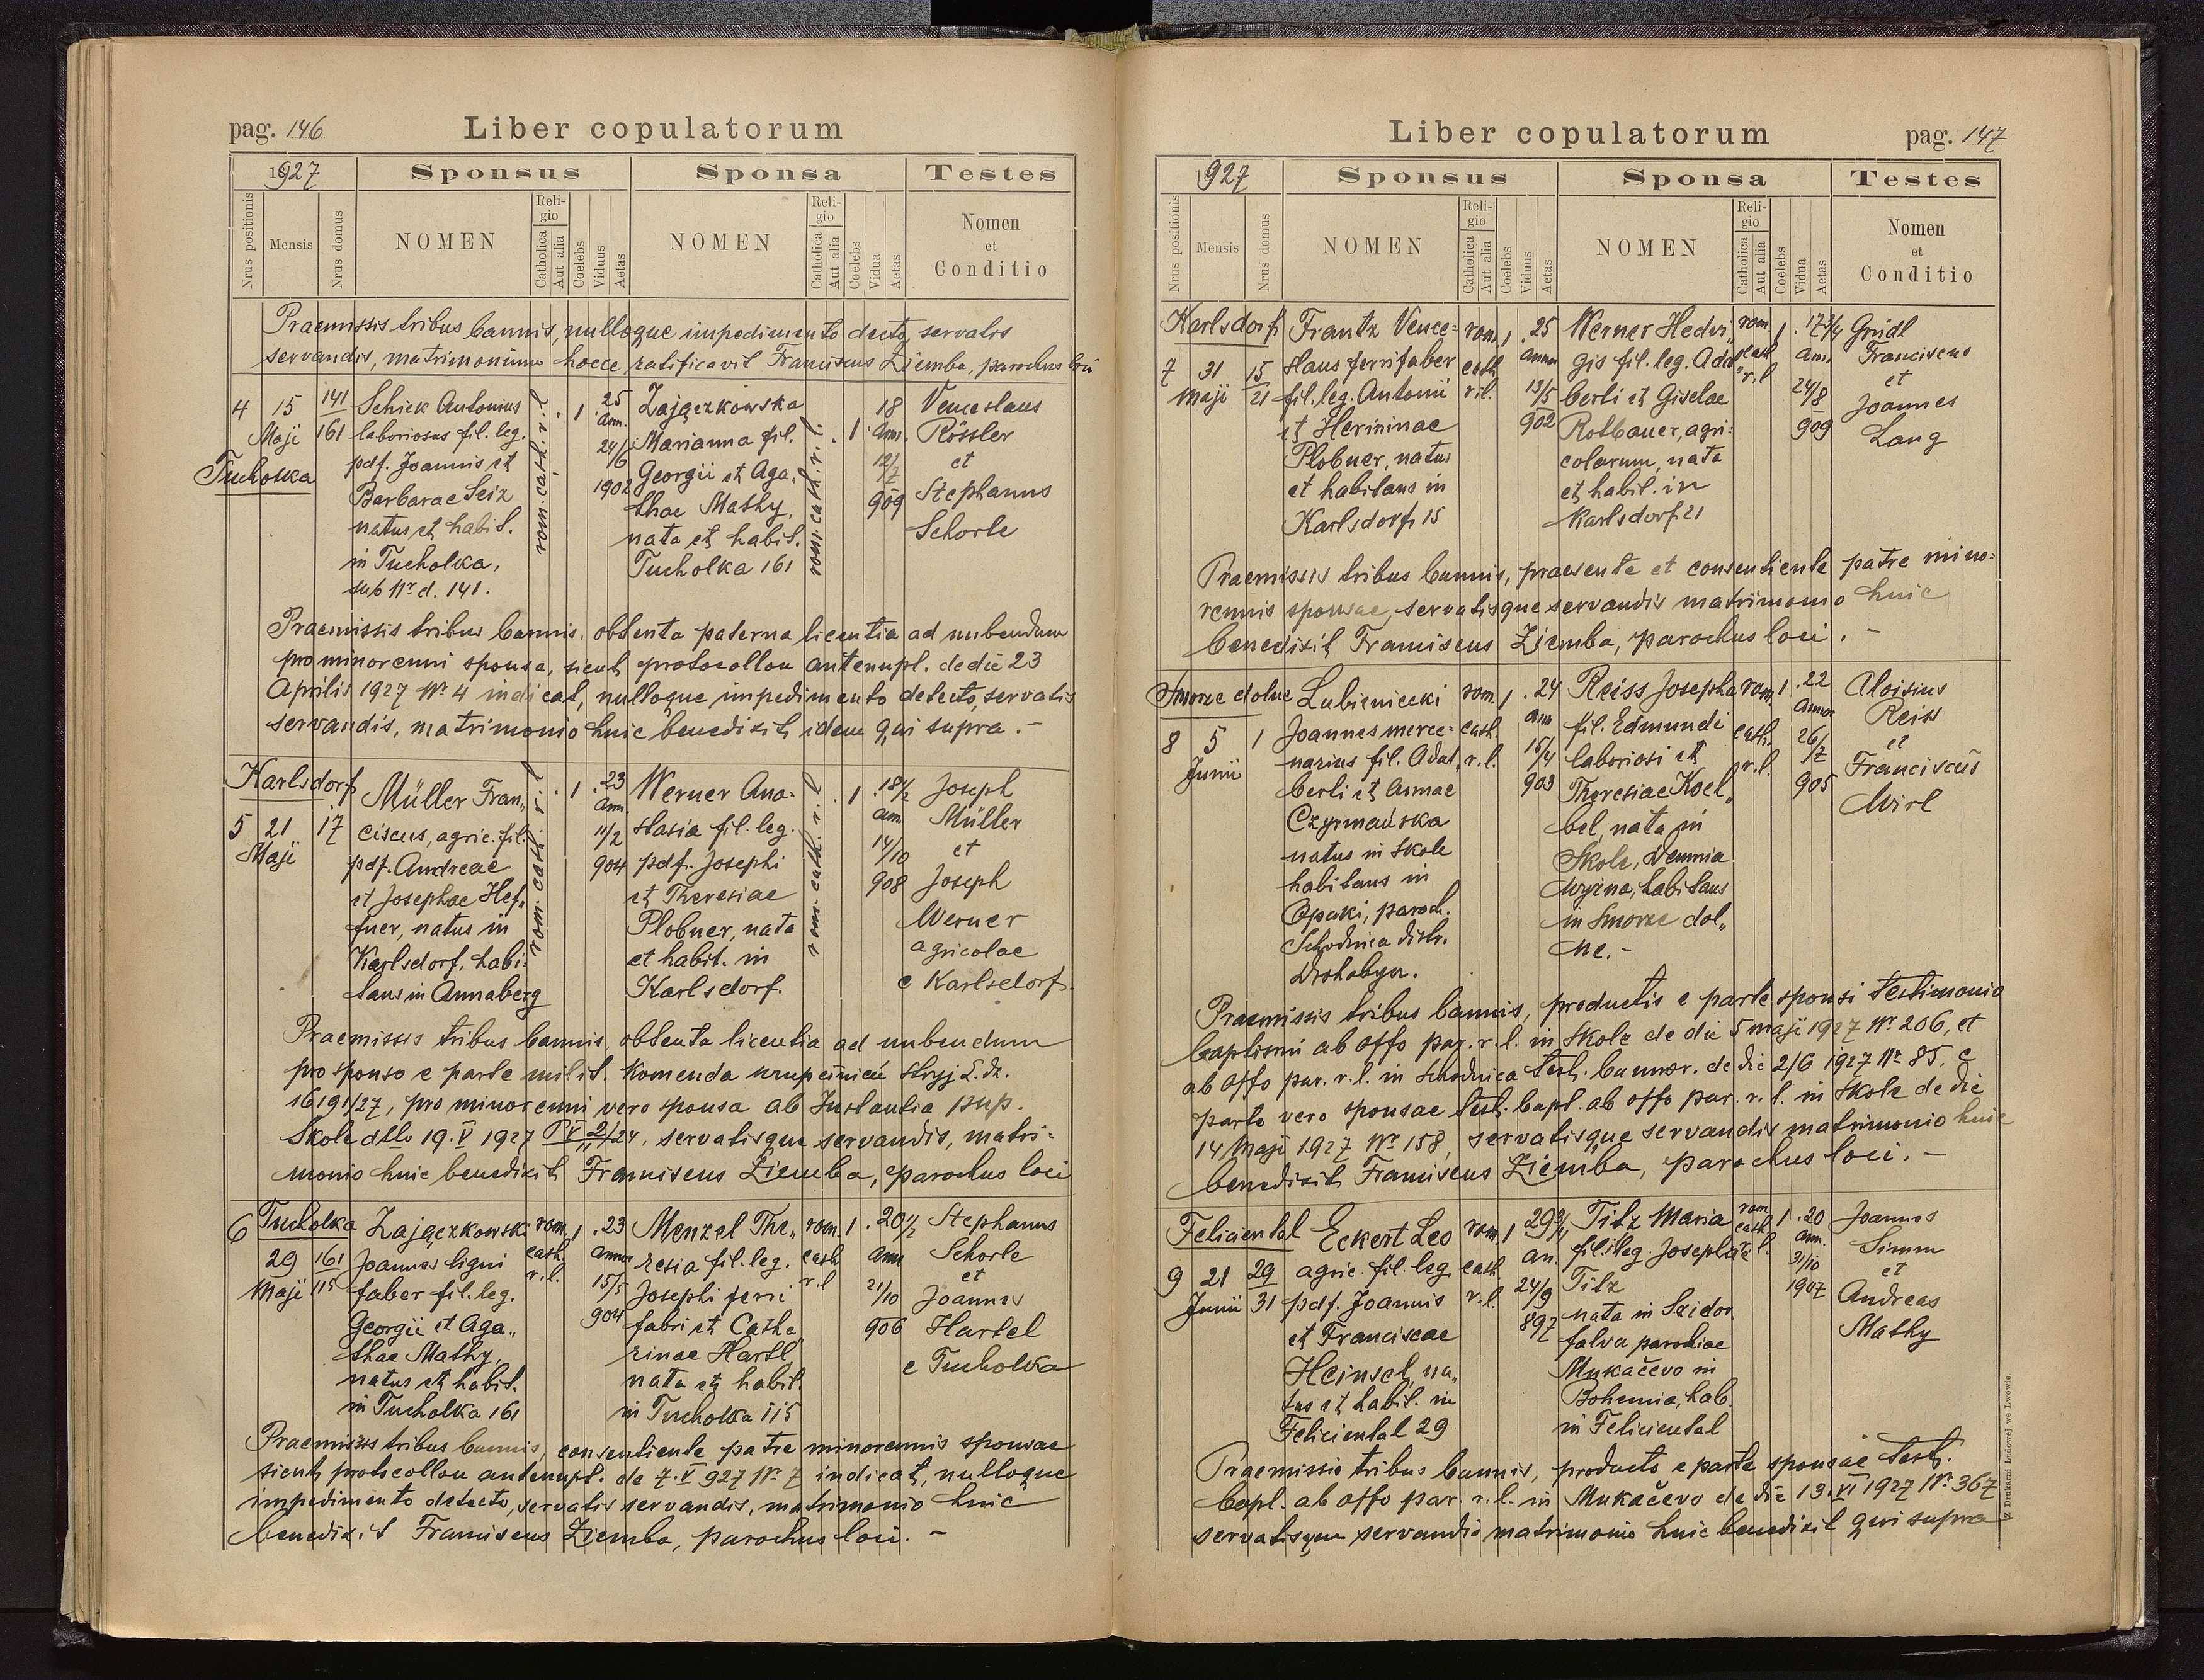 pag. 146
Liber copulatorum
1927
Sponsus
Sponsa
Testes
Nrus positionis
Mensis
Nrus domus
NOMEN
Religio
Catholica
Aut alia
Coelebs
Viduus
Aetas
NOMEN
Religio
Catholica
Aut alia
Coelebs
Vidua
Aetas
Nomen
et
Conditio
Praemissis tribus bannis, nulloque impedimento detecto, servatis
servandis, matrimonium hocce ratificavit Franciscus Ziemba, parochus loci
4
15
Maji
Tucholka
141
161
Schick Antonius
laboriosus fil. leg.
pdf. Joannis et
Barbarae Seiz
natus et habit.
in Tucholka,
sub Nr. d. 141.
rom. cath. r. l.
1
25
ann.
24/6
1902
Zajączkowska
Marianna fil.
Georgii et Aga„
thae Mathy,
nata et habit.
Tucholka 161
rom. cath. r. l.
1
18
Ann.
12/7
909
Venceslaus
Rössler
et
Stephanus
Schorle
Praemissis tribus bannis, obtenta paterna licentia ad nubendum
pro minorenni sponsa, sicut protocollon antenupt. de die 23
Aprilis 1927 Nr. 4 indicat, nulloque impedimento detecto, servatis
servandis, matrimonio huic benedixit idem qui supra. -
Karlsdorf
5
21
Maji
17
Müller Fran„
ciscus, agric. fil.
pdf. Andreae
et Josephae Hef„
fner, natus in
Karlsdorf, habi-
tans in Annaberg
rom. cath. r. l.
1
23
ann.
11/2
904
Werner Ana-
stasia fil. leg.
pdf. Josephi
et Theresiae
Plobner, nata
et habit. in
Karlsdorf.
rom. cath. r. l.
1
18 1/2
am.
14/10
908
Joseph
Müller
et
Joseph
Werner
agricolae
e Karlsdorf.
Praemissis tribus bannis, obtenta licentia ad nubendum
pro sponso e parte milit. Komenda uzupełnień Stryj L. dz.
16191/27, pro minorenni vero sponsa ab Instantia pup.
Skole ddto 19. V 1927 servatisque servandis, matri-
monio huic benedixit Franciscus Ziemba, parochus loci
6
Tucholka
29
Maji
161
115
Zajączkowski
Joannes ligni
faber fil. leg.
Georgii et Aga„
thae Mathy,
natus et habit.
in Tucholka 161
rom.
cath.
r. l.
1
23
annor
15/5
904
Menzel The„
resia fil. leg.
Josephi ferri
fabri et Catha„
rinae Hartl
nata et habit.
in Tucholka 115
rom.
cath
r. l
1
20 1/2
ann
21/10
906
Stephanus
Schorle
et
Joannes
Hartel
e Tucholka
Praemissis tribus bannis, consentiente patre minorennis sponsae
sicut protocollon antenupt. de 7. V 927 Nr. 7 indicat, nulloque
impedimento detecto, servatis servandis, matrimonio huic
benedixit Franciscus Ziemba, parochus loci. -
Liber copulatorum
pag. 147
1927
Sponsus
Sponsa
Testes
Nrus positionis
Mensis
Nrus domus
NOMEN
Religio
Catholica
Aut alia
Coelebs
Viduus
Aetas
NOMEN
Religio
Catholica
Aut alia
Coelebs
Vidua
Aetas
Nomen
et
Conditio
Karlsdorf
7
31
Maji
15
21
Frantz Vence-
slaus ferrifaber
fil. leg. Antonii
et Herminae
Plobner, natus
et habitans in
Karlsdorf 15
rom.
cath
r. l.
1
25
annor
13/5
902
Werner Hedvi„
gis fil. leg. Adal„
berti et Giselae
Rotbauer, agri-
colarum, nata
et habit. in
Karlsdorf 21
rom.
cath
r. l
1
17 3/4
am.
24/8
909
Gridl
Franciscus
et
Joannes
Lang
Praemissis tribus bannis, praesente et consentiente patre mino-
rennis sponsae, servatisque servandis matrimonio huic
benedixit Franciscus Ziemba, parochus loci. -
Smorze dolne
8
5
Junii
1
Lubieniecki
Joannes merce-
narius fil. Adal„
berti et Annae
Czyrmańska
natus in Skole
habitans in
Opaki, paroch.
Schodnica distr.
Drohobycz.
rom.
cath.
r. l.
1
24
ann
15/4
903
Reiss Josepha
fil. Edmundi
laboriosi et
Theresiae Koel„
bel, nata in
Skole, Demnia
wyżna, habitans
in Smorze dol„
ne. -
rom.
cath.
r. l.
1
22
annor
26/7
905
Aloisius
Reiss
et
Franciscus
Wirl
Praemissis tribus bannis, productis e parte sponsi testimonio
baptismi ab offo par. r. l. in Skole de die 5 maji 1927 Nr. 206, et
ab offo par. r. l. in Schodnica test. bannor. de die 2/6 1927 Nr. 85, e
parte vero sponsae test. bapt. ab offo par. r. l. in Skole de die
14 Maji 1927 Nr. 158, servatisque servandis matrimonio huic
benedixit Franciscus Ziemba, parochus loci. -
Feliciental
9
21
Junii
29
31
Eckert Leo
agric. fil. leg.
pdf. Joannis
et Franciscae
Heinsel, na„
tus et habit. in
Feliciental 29
rom
cath.
r. l.
1
29 3/4
an.
24/9
897
Titz Maria
fil. illeg. Josephae
Titz
nata in Szidor
falva parochiae
Mukačevo in
Bohemia, hab.
in Feliciental
rom.
cath
r. l.
1
20
ann.
31/10
1907
Joannes
Simm
et
Andreas
Mathy
Praemissis tribus bannis, producto e parte sponsae test.
bapt. ab offo par. r. l. in Mukačevo de die 13. VI 1927 Nr. 367
servatisque servandis matrimonio huic benedixit qui supra
Z Drukarni Ludowej we Lwowie.